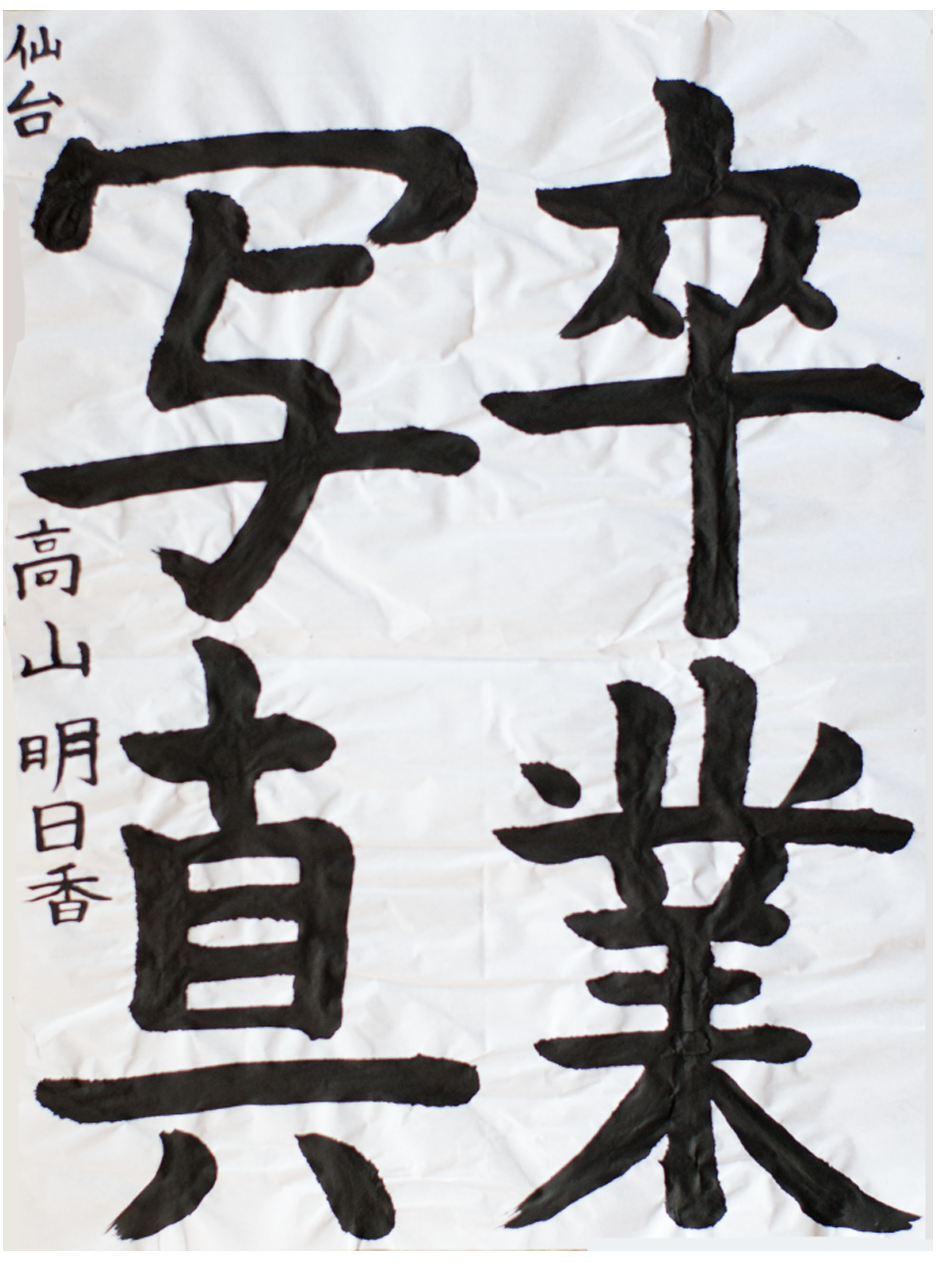 卒業
写真
仙台
高山明日香